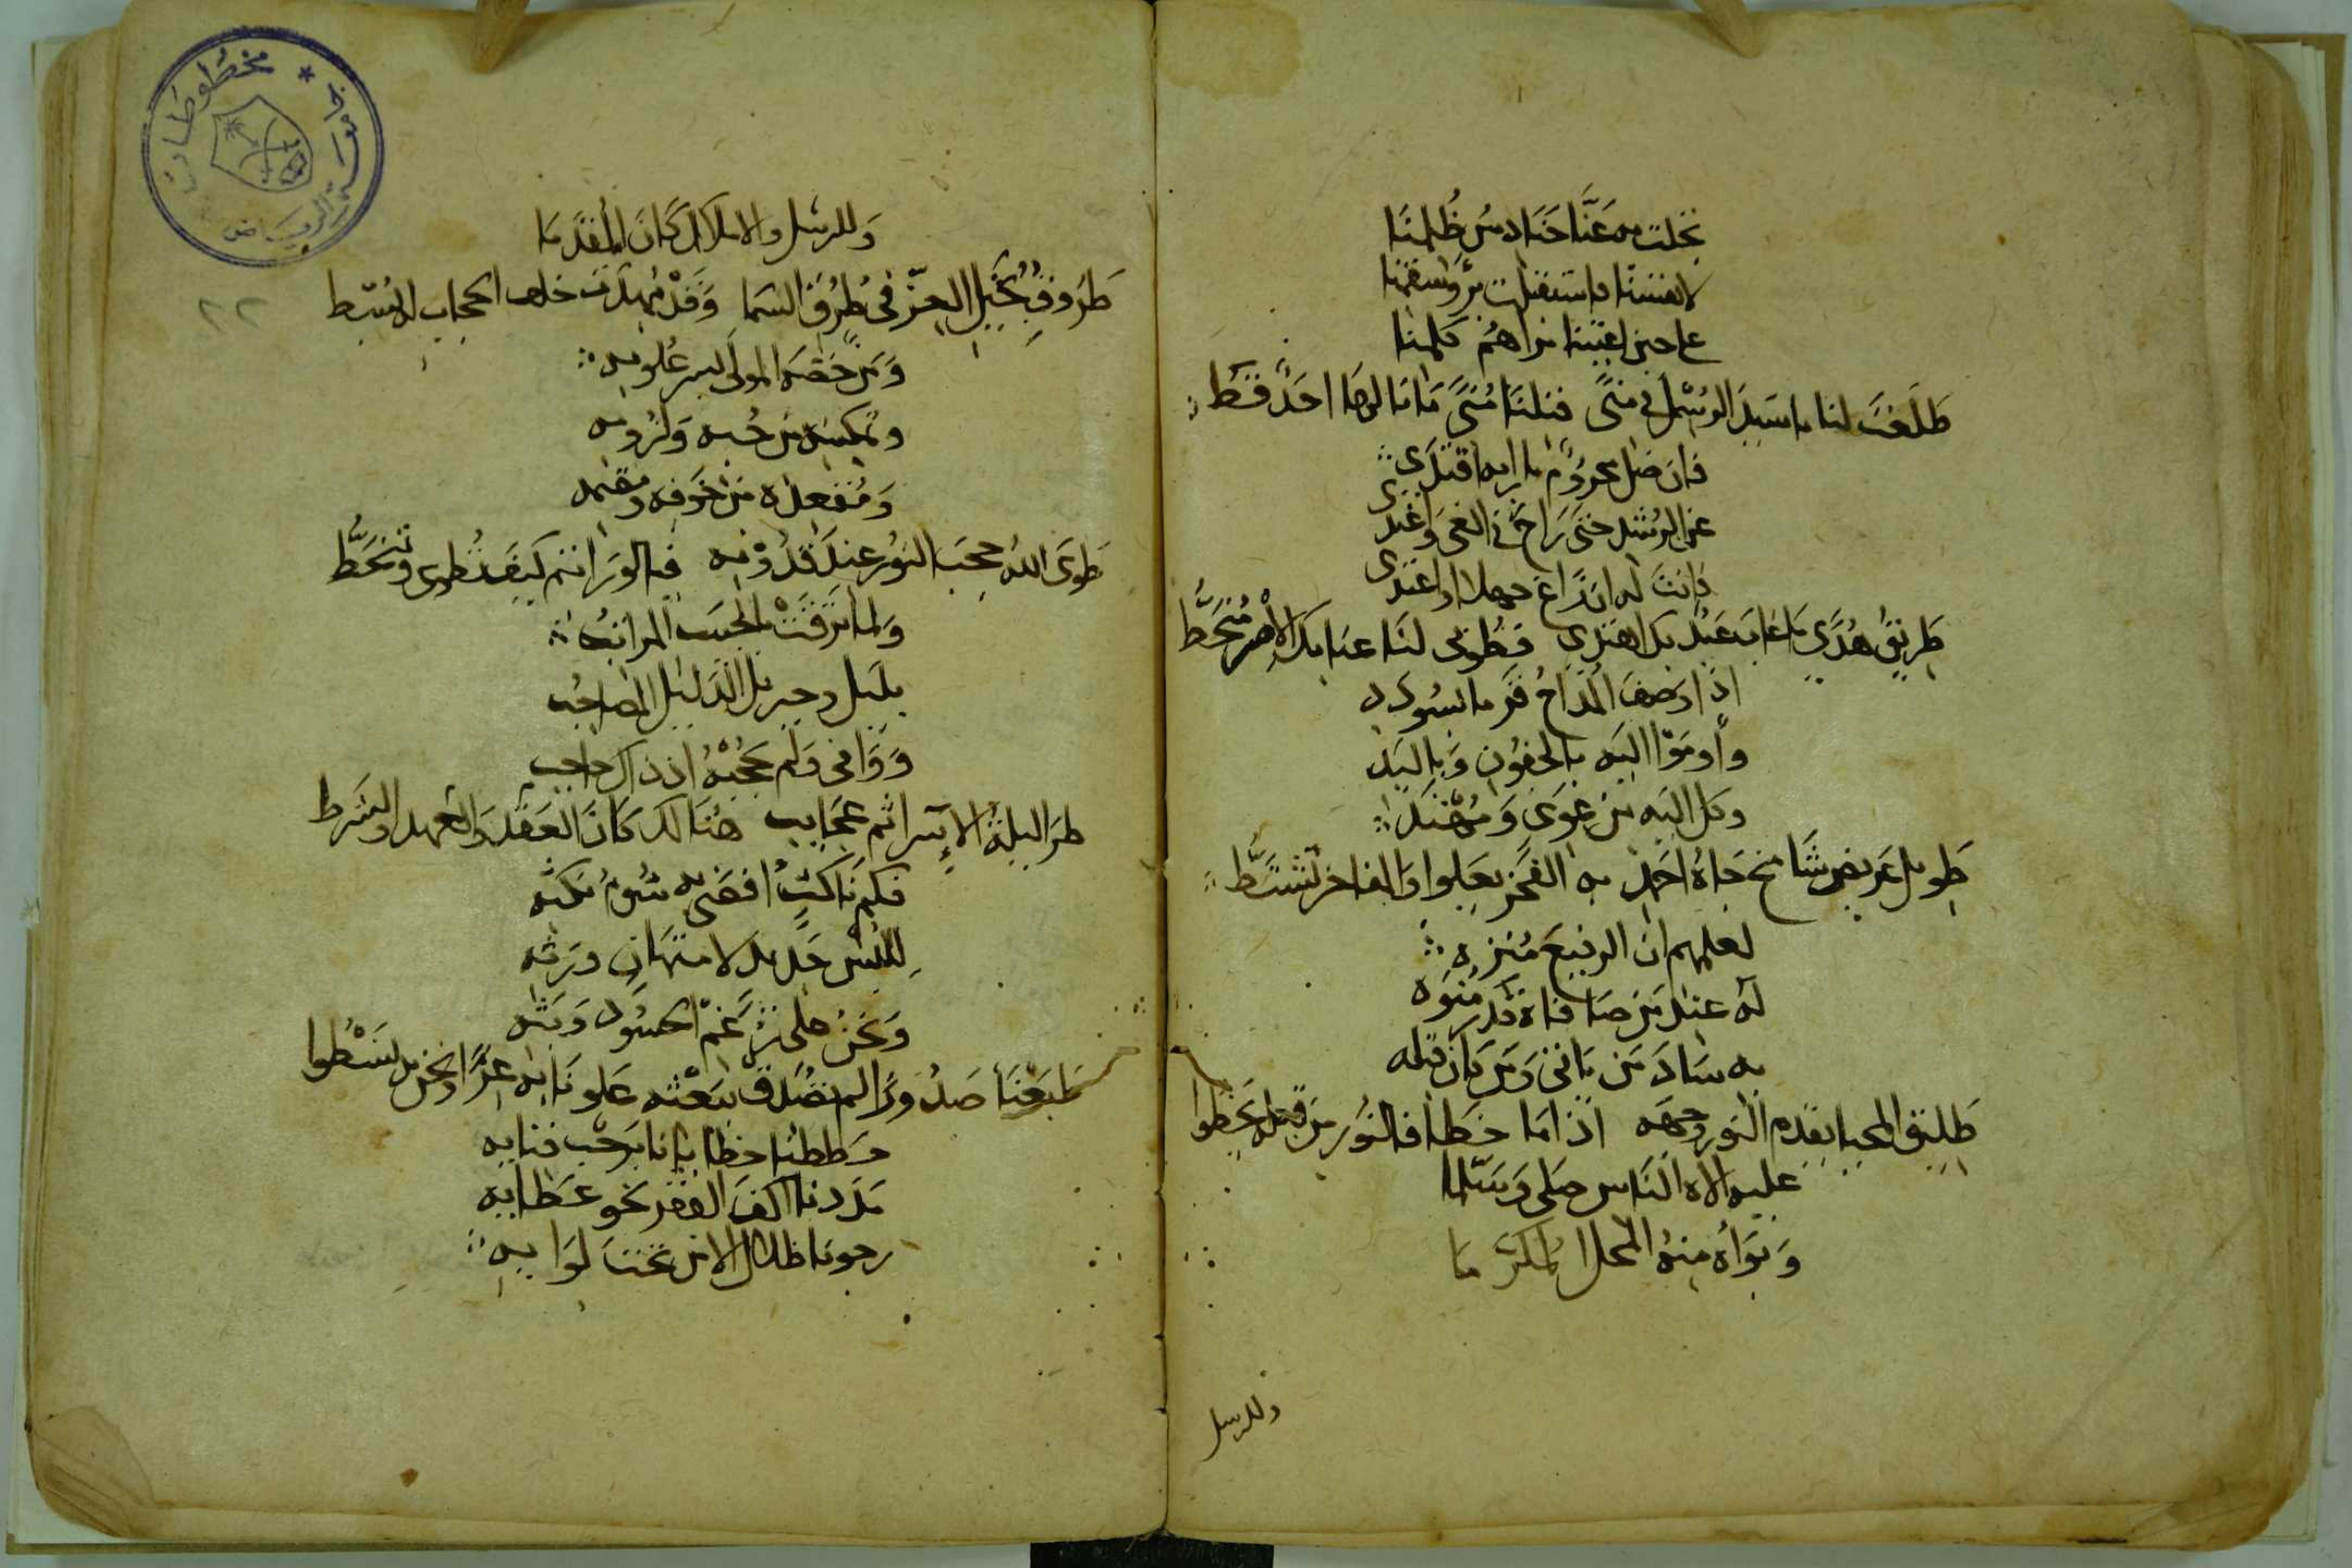 تجلت به عنا حنادس ظلمنا
لانفسنا فاستنقذت من واسقمنا
على حين لقيتنا نراهم كلمنا
طَلَعْتَ لنا يا سيدَ الرُسْل في منًى فنلنَا مُنًى مَا نالها احَدٌ قط
فان ضل محرومٌ بارايه اقتدى
عن الرشد حتى رَاحَ في الغى وَاغتدى
فانت له ان زاغ جهلا او اعتدى
طريقُ هُدًى ما غاب عبْدٌ بك اهتدى فطُوبى لنَا عنا بك الاصر مُنْحَطُّ
اذا وصفَ المُدّاحُ قرما بسُودد
وأومَوْا اليه بالجفون وَباليَد
وكل اليه من غوى وَمهتد
طويل عريض شامخ جاهُ احمد به الفخر يعلوا والمفاخر تشتطُّ
لعلمهم ان الرفيعَ مُنزه
له عند من صافاه قدر مُنوه
به سَادَ من ياتى وَمن كان قبله
طليق المحيا يقدم النور وجهه اذا ما خطا فالنُّور من قبله يخطوا
عليه الاه النَاس صلى وَسَلّما
وَبَوَأَه منهُ المحلَ المكرَّمَا
وللرسل
وَللرسل والاملاك كانَ المُقدَّمَا
طَرُوقٌ بخَيل العزّ في طُرُق السَما وَقَدْ مُهدَت خلف الحجاب له البُسْط
وَمن خصّهُ المولى بسر علومه
وتمكينه من حُبه وَلزُومه
وَمُقعدُه من خوفه ومُقيمه
طوَى اللهُ حجبَ النورُ عندَ قدُوْمه فيه الورا انتم كيفَ تُطوى وتنحَطُّ
وَلما تَرَقَتْ بالحبيب المراتبُ
بلَيل وجبريل الدَليل المُصاحبُ
وَوَافى وَلم يَحجُبْهُ اذ ذاك حاجب
طرَا ليلةَ الإسرا ثم عجَايب هُنَالك كانَ العَقدُ وَالعهد والشرط
فكم نَاكثٍ افضى به شوم نكثه
لِلُبْس جَديد الامتهان ورَثه
وَنحنُ على رَغم الحسُود وَبَثه
طبَعْنَا صدُورًا لم تُصَدق ببَعْثه علونَا به عزًا ونحن به نَسْطُوا
حططنا خطايانا برحب فنايه
مدَدنا اكفَ الفقر نحو عَطَايه
رجونا ظلال الامن تحت لوَايه
مخطوطات
جامعة الرياض
٢٢